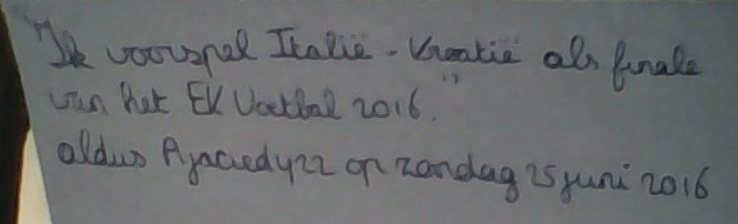 "Ik voorspel Italië - Kroatië als finale
van het EK Voetbal 2016."
aldus Ajaciedy22 op zondag 25 juni 2016